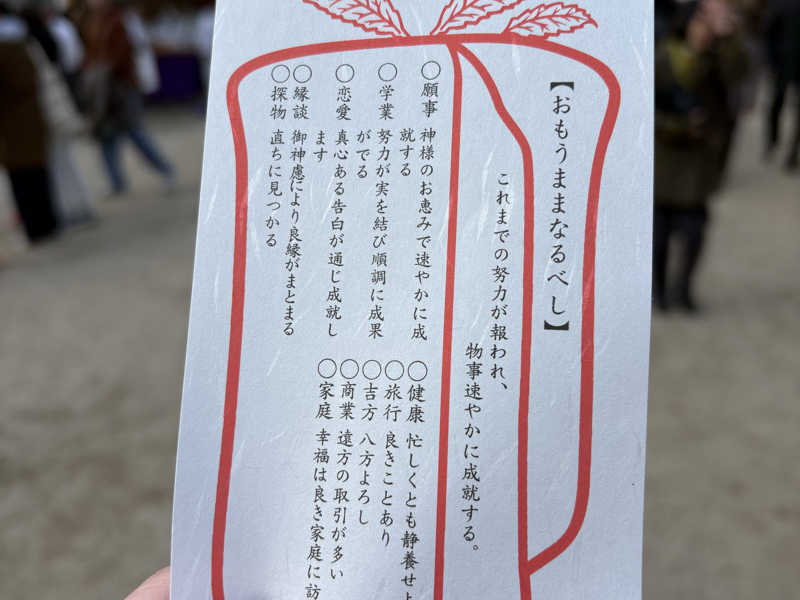 【おもうままなるべし】
これまでの努力が報われ、
物事速やかに成就する。
○願事 神様のお恵みで速やかに成
就する
○学業 努力が実を結び順調に成果
がでる
○恋愛 真心ある告白が通じ成就し
ます
○縁談 御神慮により良縁がまとまる
○探物 直ちに見つかる
○健康 忙しくとも静養せよ
○旅行 良きことあり
○吉方 八方よろし
○商業 遠方の取引が多い
○家庭 幸福は良き家庭に訪